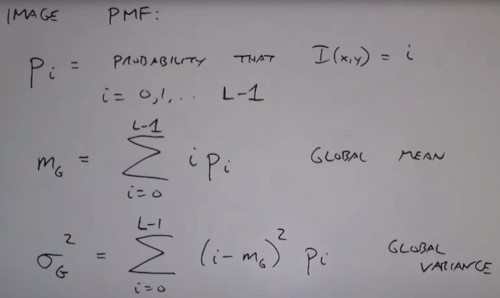 IMAGE PMF:
Pi = PROBABILITY THAT I(x,y) = i
i = 0,1,... L-1
m_G = ∑_{i=0}^{L-1} i p_i GLOBAL MEAN
σ_G^2 = ∑_{i=0}^{L-1} (i-m_G)^2 p_i GLOBAL VARIANCE